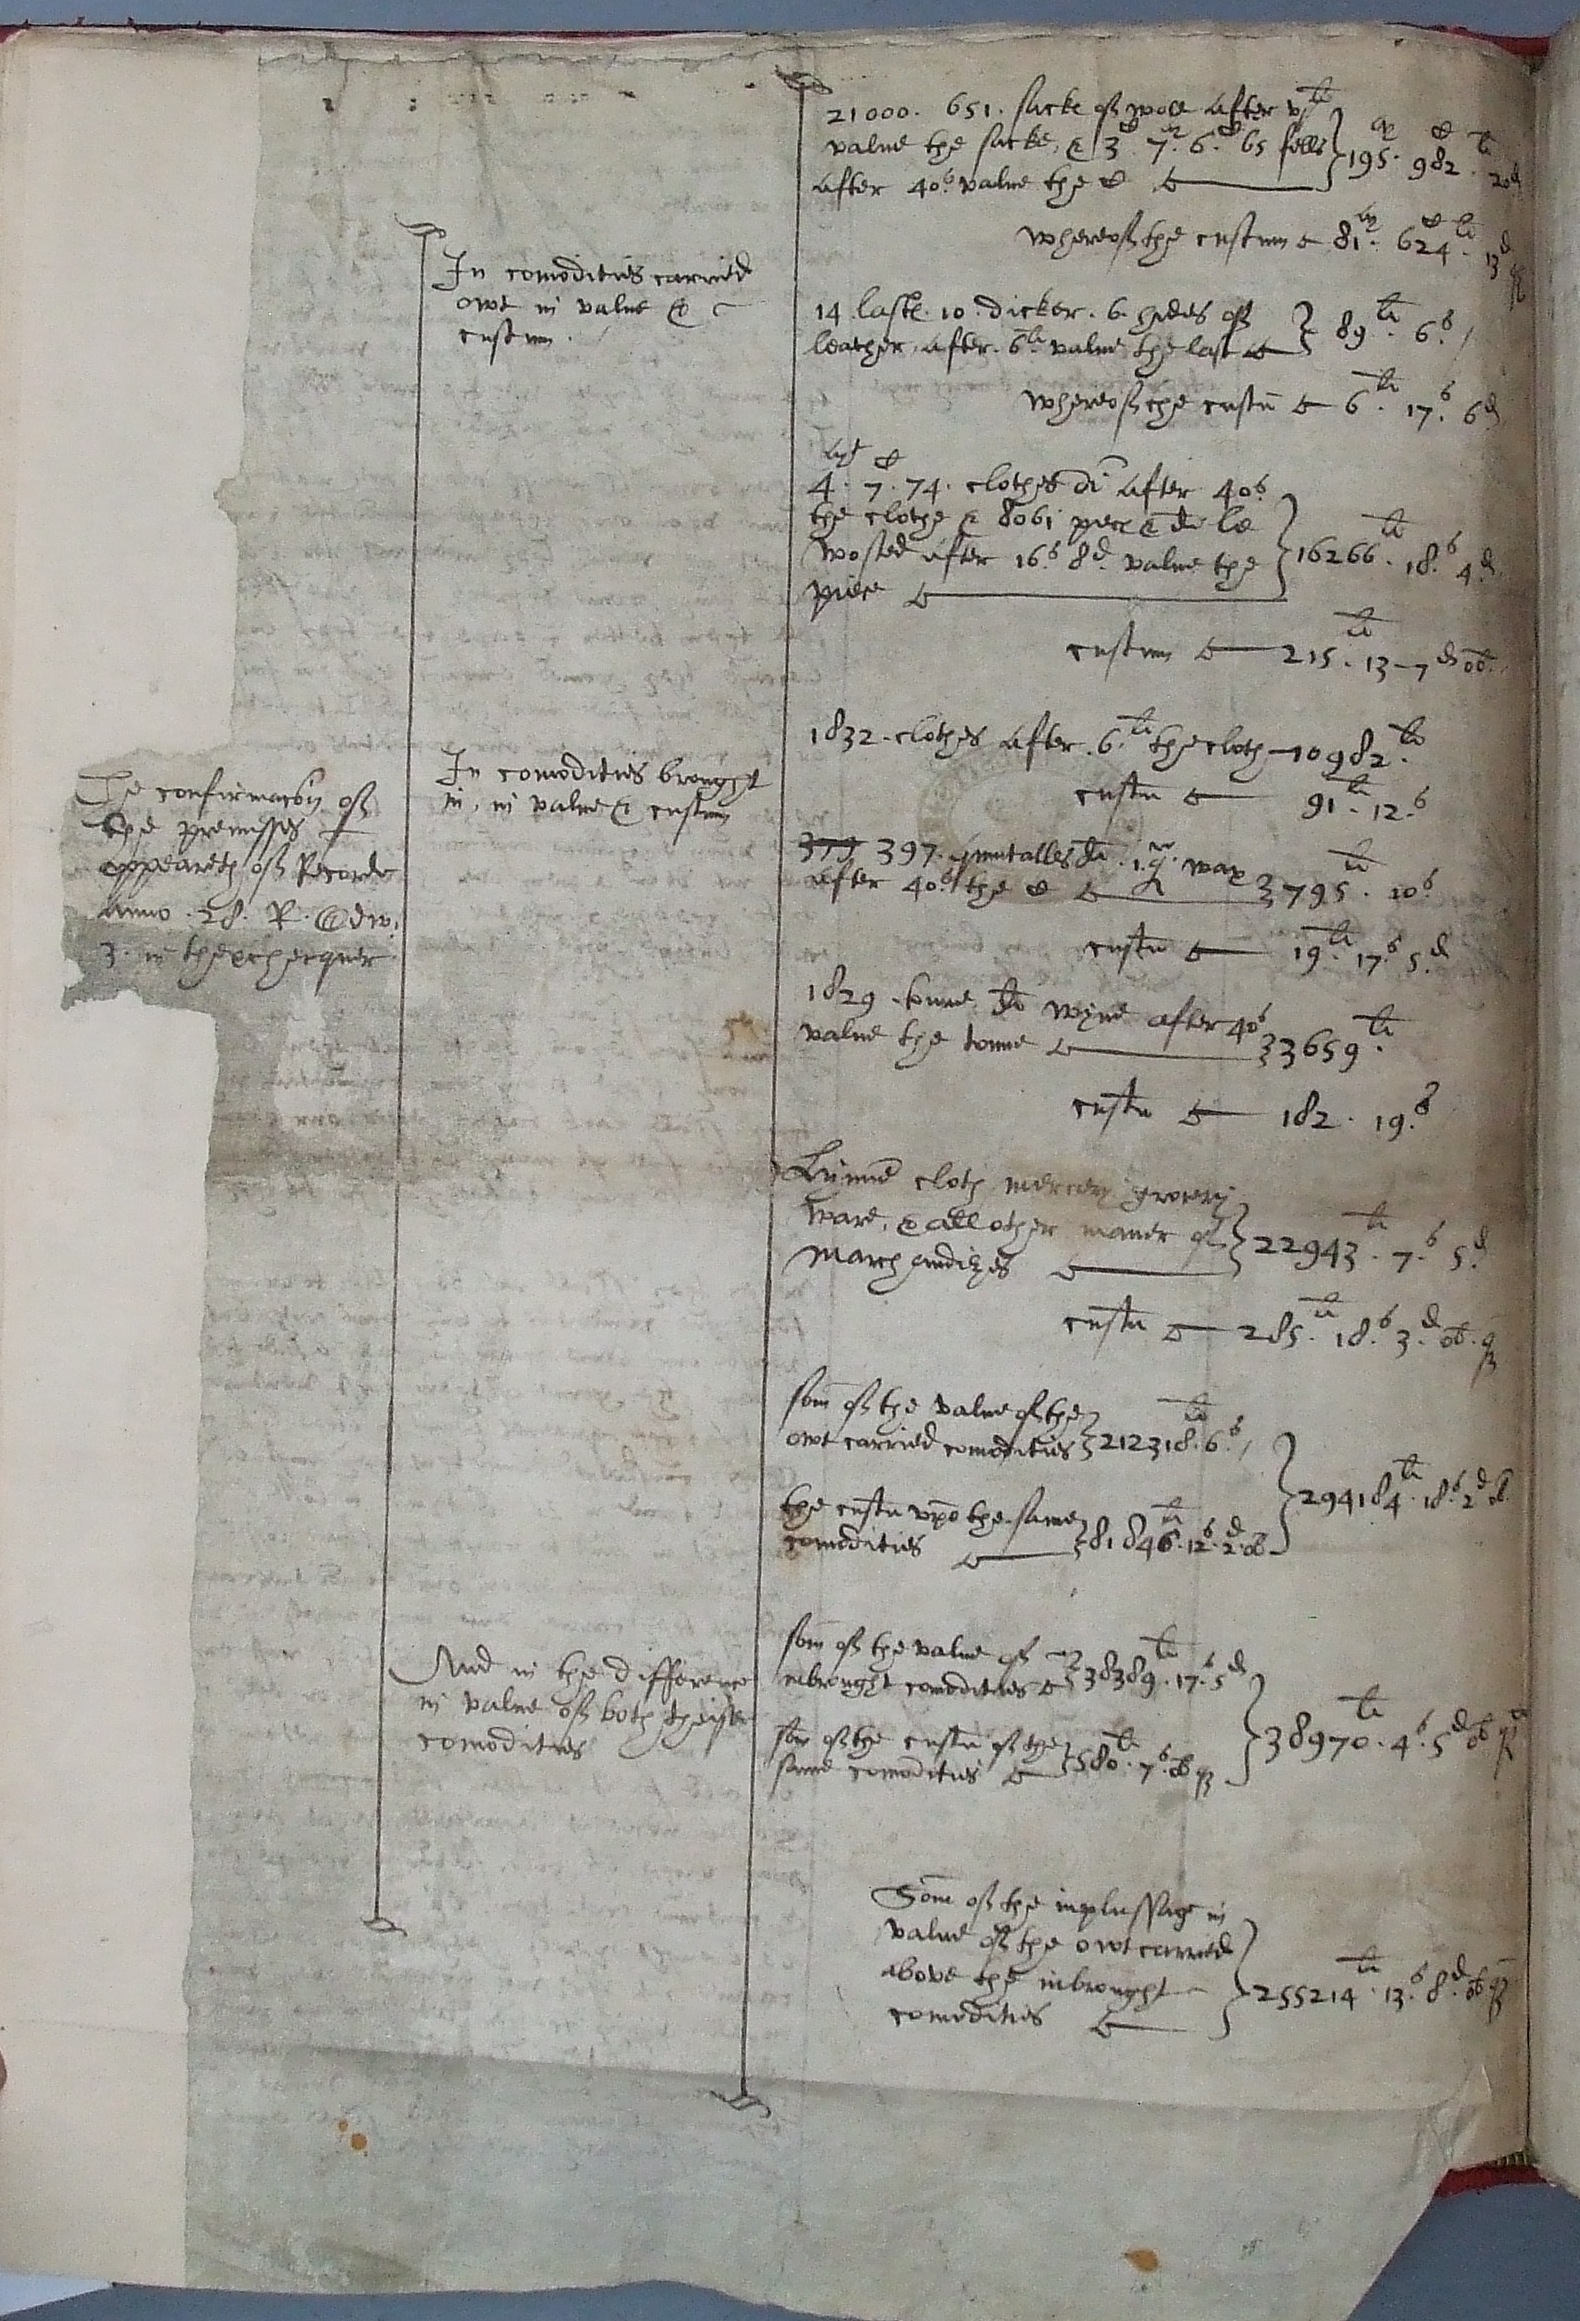 The confirmacōn off
the premisses
appeareth off Recorde
anno . 28. R. Edw:
3. in thexchequer
In comodities carried
owt in value &
custum.
In comodities brought
in, in value & custum
And in the difference
in value off both theise
comodities
21000. 651. sacke off woll after vjli
value the sacke, & 3 7. 6. 65 fells
after 40s value the C
195. 982. li 20d
Whereoff the custum 81. 624. li 13d
14 laste. 10. dicker. 6. hides off
leather, after. 6li value the last
89li. 6s
Whereoff the custū 6li. 17s. 6d
4. 7. 74. clothes di after 40s
the clothe & 8061 pece & di le
wosted after 16s 8d. value the
piece
16266li. 18s 4d.
custum 215li. 13 – 7d ob.
1832. clothes after. 6li the cloth – 10982li.
custū 91li. 12s
397. quintalles di. 1.q. wax
after 40s the C
795li. 10s
custū 19li. 17s 5d
1829 tunne di wyne after 40s
value the tonne
3659li.
custū 182. 19s
Linnē cloth mercery grocery
ware, & all other maner off
marchandizes
22943li. 7s. 5d
custū 285li. 18s. 3d. ob. q
som̄ off the value off the
owt carried comodities
212318li. 6s
the custū vpō the same
comodities
81846li. 12s. 2d. ob
294184li. 18s 2d ob
som̄ off the value off
inbrought comodities
38389li. 17s. 5d
som̄ off the custū off the
same comodities
580li. 7s. ob q
38970li. 4s. 5d ob q
Som̄e off the inplussage in
value off the owt carried
above the inbrought
comodities
255214li. 13s. 8d. ob q